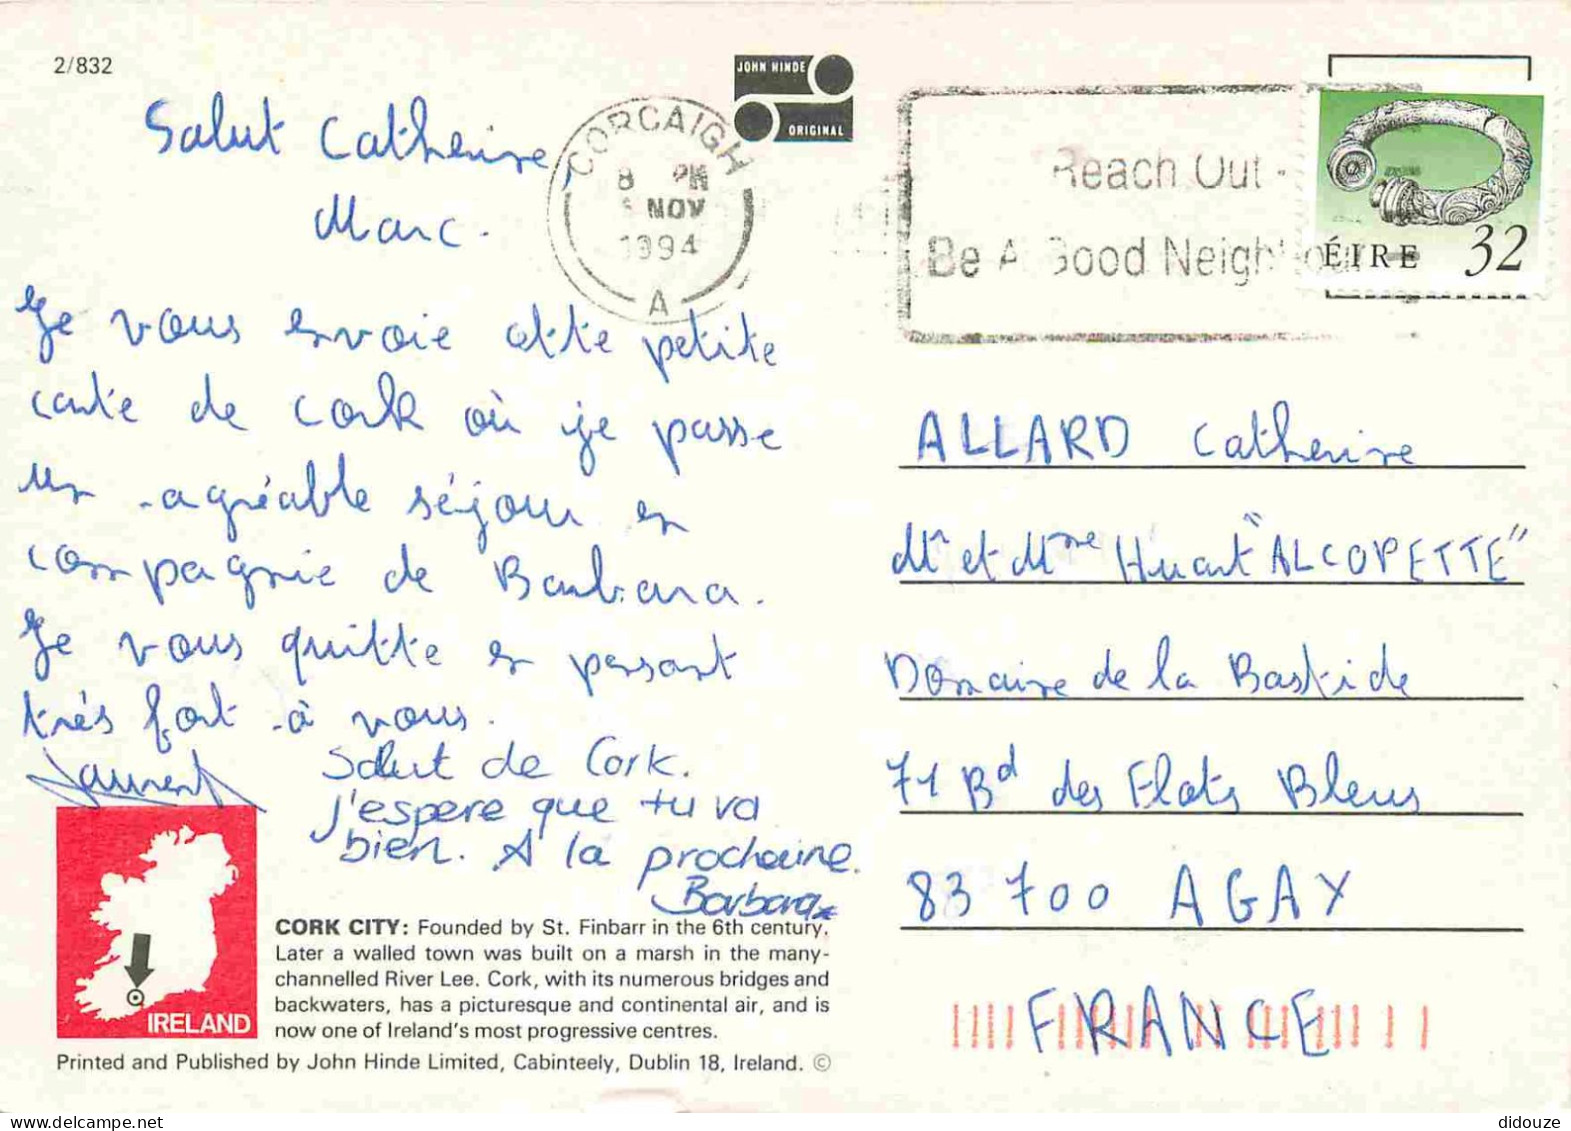 2/832
JOHN HINDE
ORIGINAL
CORCAIGH
8 PM
NOV
1994
A
Reach Out -
Be A Good Neighbour
ÉIRE 32
Salut Catherine,
Marc.
Je vous envoie cette petite
carte de Cork où je passe
un agréable séjour en
compagnie de Barbara.
Je vous quitte en pensant
très fort à vous.
Laurent
Salut de Cork.
j'espere que tu va
bien. A la prochaine.
Barbara
ALLARD Catherine
Mr et Mme Huart "ALCOPETTE"
Domaine de la Bastide
71 Bd des Flots Bleus
83 700 AGAY
FRANCE
IRELAND
CORK CITY: Founded by St. Finbarr in the 6th century.
Later a walled town was built on a marsh in the many-
channelled River Lee. Cork, with its numerous bridges and
backwaters, has a picturesque and continental air, and is
now one of Ireland's most progressive centres.
Printed and Published by John Hinde Limited, Cabinteely, Dublin 18, Ireland. ©
didouze